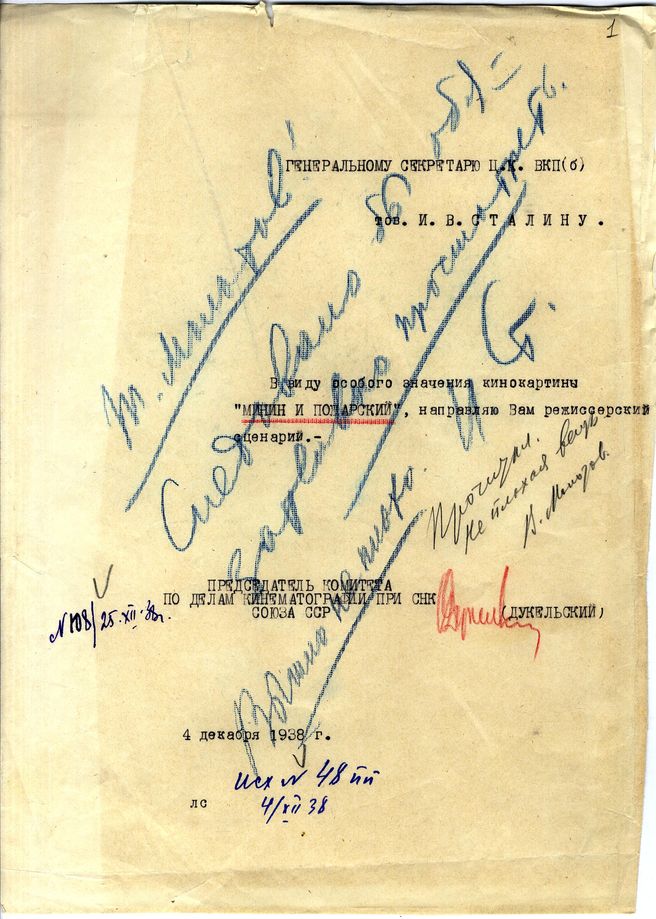 1
ГЕНЕРАЛЬНОМУ СЕКРЕТАРЮ Ц.К. ВКП(б)
тов. И.В.СТАЛИНУ.
т. Молотов!
Следовало бы обя-
зательно просмотреть.
Вышло не плохо.
И Ст.
В виду особого значения кинокартины
"МИНИН И ПОЖАРСКИЙ", направляю Вам режиссерский
сценарий.-
Прочитал.
Не плохая вещь
В. Молотов.
ПРЕДСЕДАТЕЛЬ КОМИТЕТА
ПО ДЕЛАМ КИНЕМАТОГРАФИИ ПРИ СНК
СОЮЗА ССР
(ДУКЕЛЬСКИЙ)
N108/25.XII.38г.
4 декабря 1938 г.
исх N 48пп
4/XII 38
лс